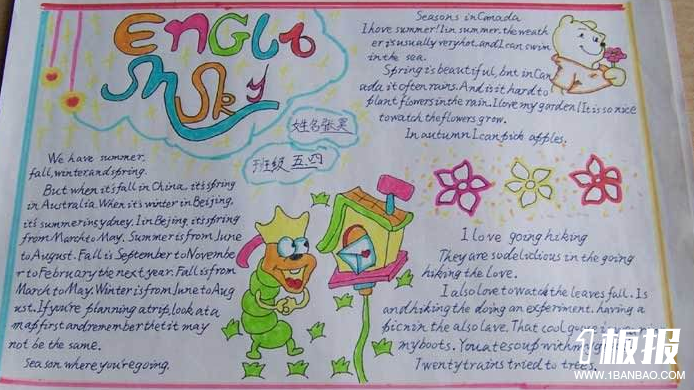 English Sky
姓名张昊
班级五四
We have summer,
fall, winter and spring.
But when it's fall in China, it's spring
in Australia. When it's winter in Beijing,
it's summer in sydney. In Bejing, it's spring
from March to May. Summer is from June
to August. Fall is September to Novembe
r to february the next year. Fall is from
March to May. Winter is from June to Aug
ust. If you're planning a trip, look at a
map first and remember the tit may
not be the same.
Season where you're going.
Seasons in Canada
I hove summer! In summer, the weath
er is usually very hot, and I can swim
in the sea.
Spring is beautiful, but in Can
ada it often rains. And is it hard to
plant flowers in the rain. I love my garden! It is so nice
to watch the flowers grow.
In autumn I can pick apples.
I love going hiking
They are so delicious in the going
hiking the love.
I also love to watch the leaves fall. Is
and hiking the doing an experiment, having a
picnin the also lave. That cool
my boots. You ate soup with my
Twenty trains tried to trees.
1板报
WWW.1BANBAO.COM